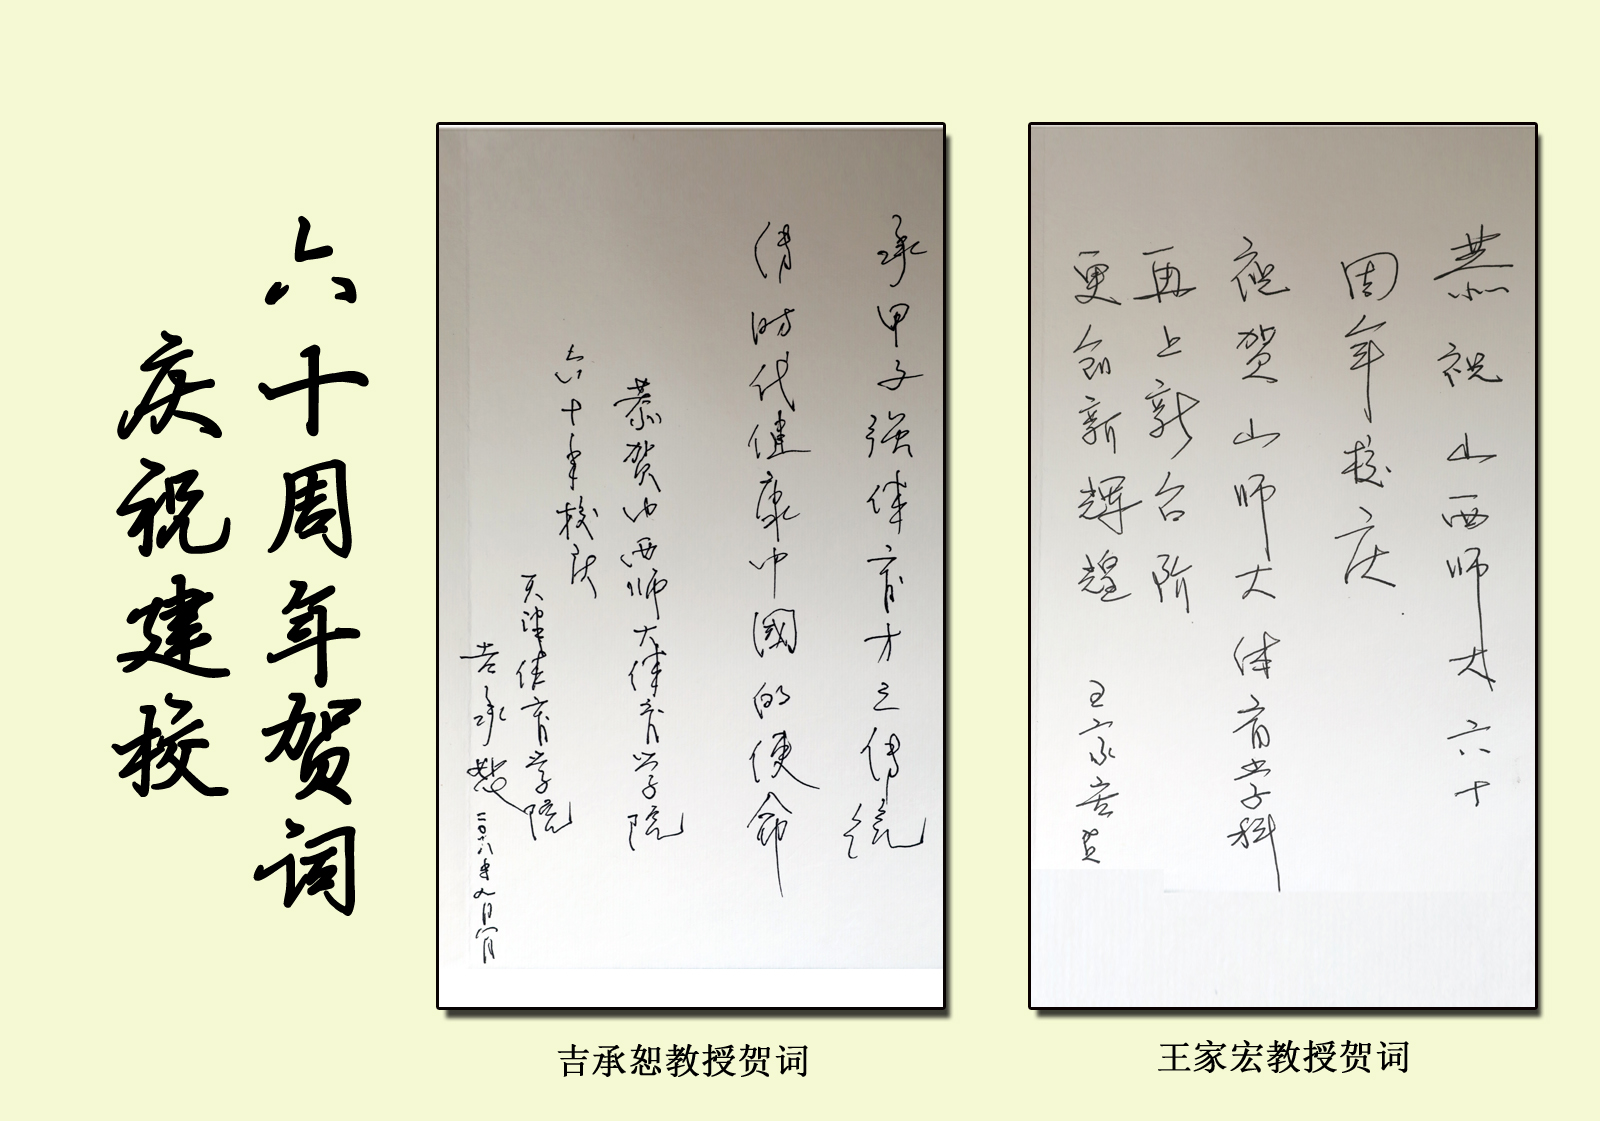 庆祝建校
六十周年贺词
承甲子强体育才之传统
倩时代健康中國的使命
恭贺山西师大体育学院
六十年校庆
天津体育学院
吉承恕
二〇一八年九月
吉承恕教授贺词
恭祝山西师大六十
周年校庆
祝贺山师大体育学科
再上新台阶
更创新辉煌
王家宏贺
王家宏教授贺词